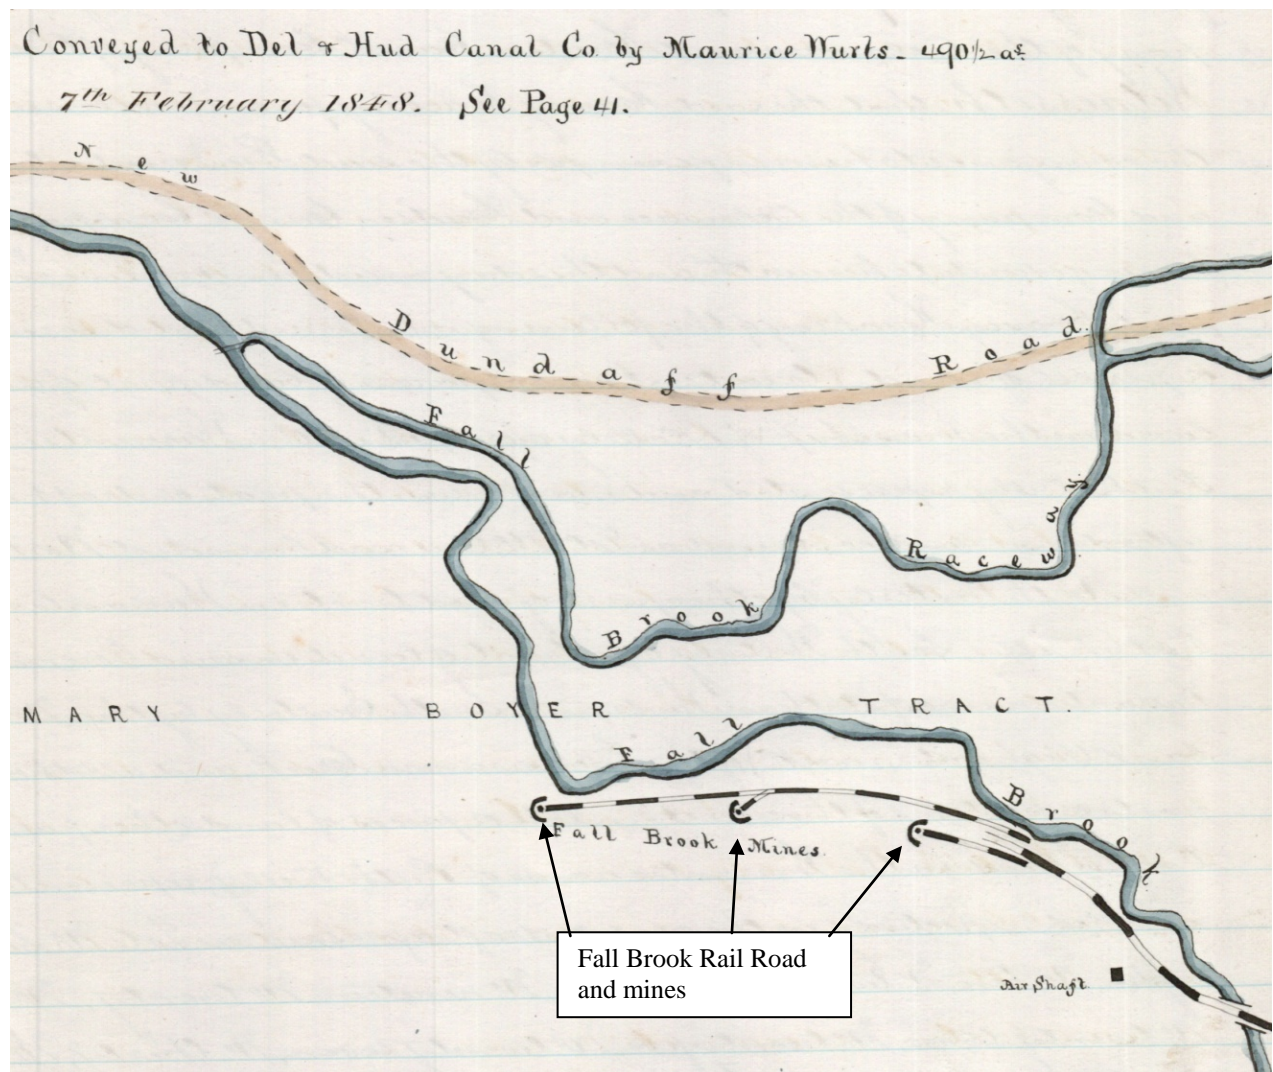 Conveyed to Del & Hud Canal Co by Maurice Wurts - 490 1/2 as.
7th February 1848. See Page 41.
New Dundaff Road.
Fall Brook Raceway
MARY BOYER TRACT.
Fall Brook
Fall Brook Mines.
Fall Brook Rail Road
and mines
Air Shaft